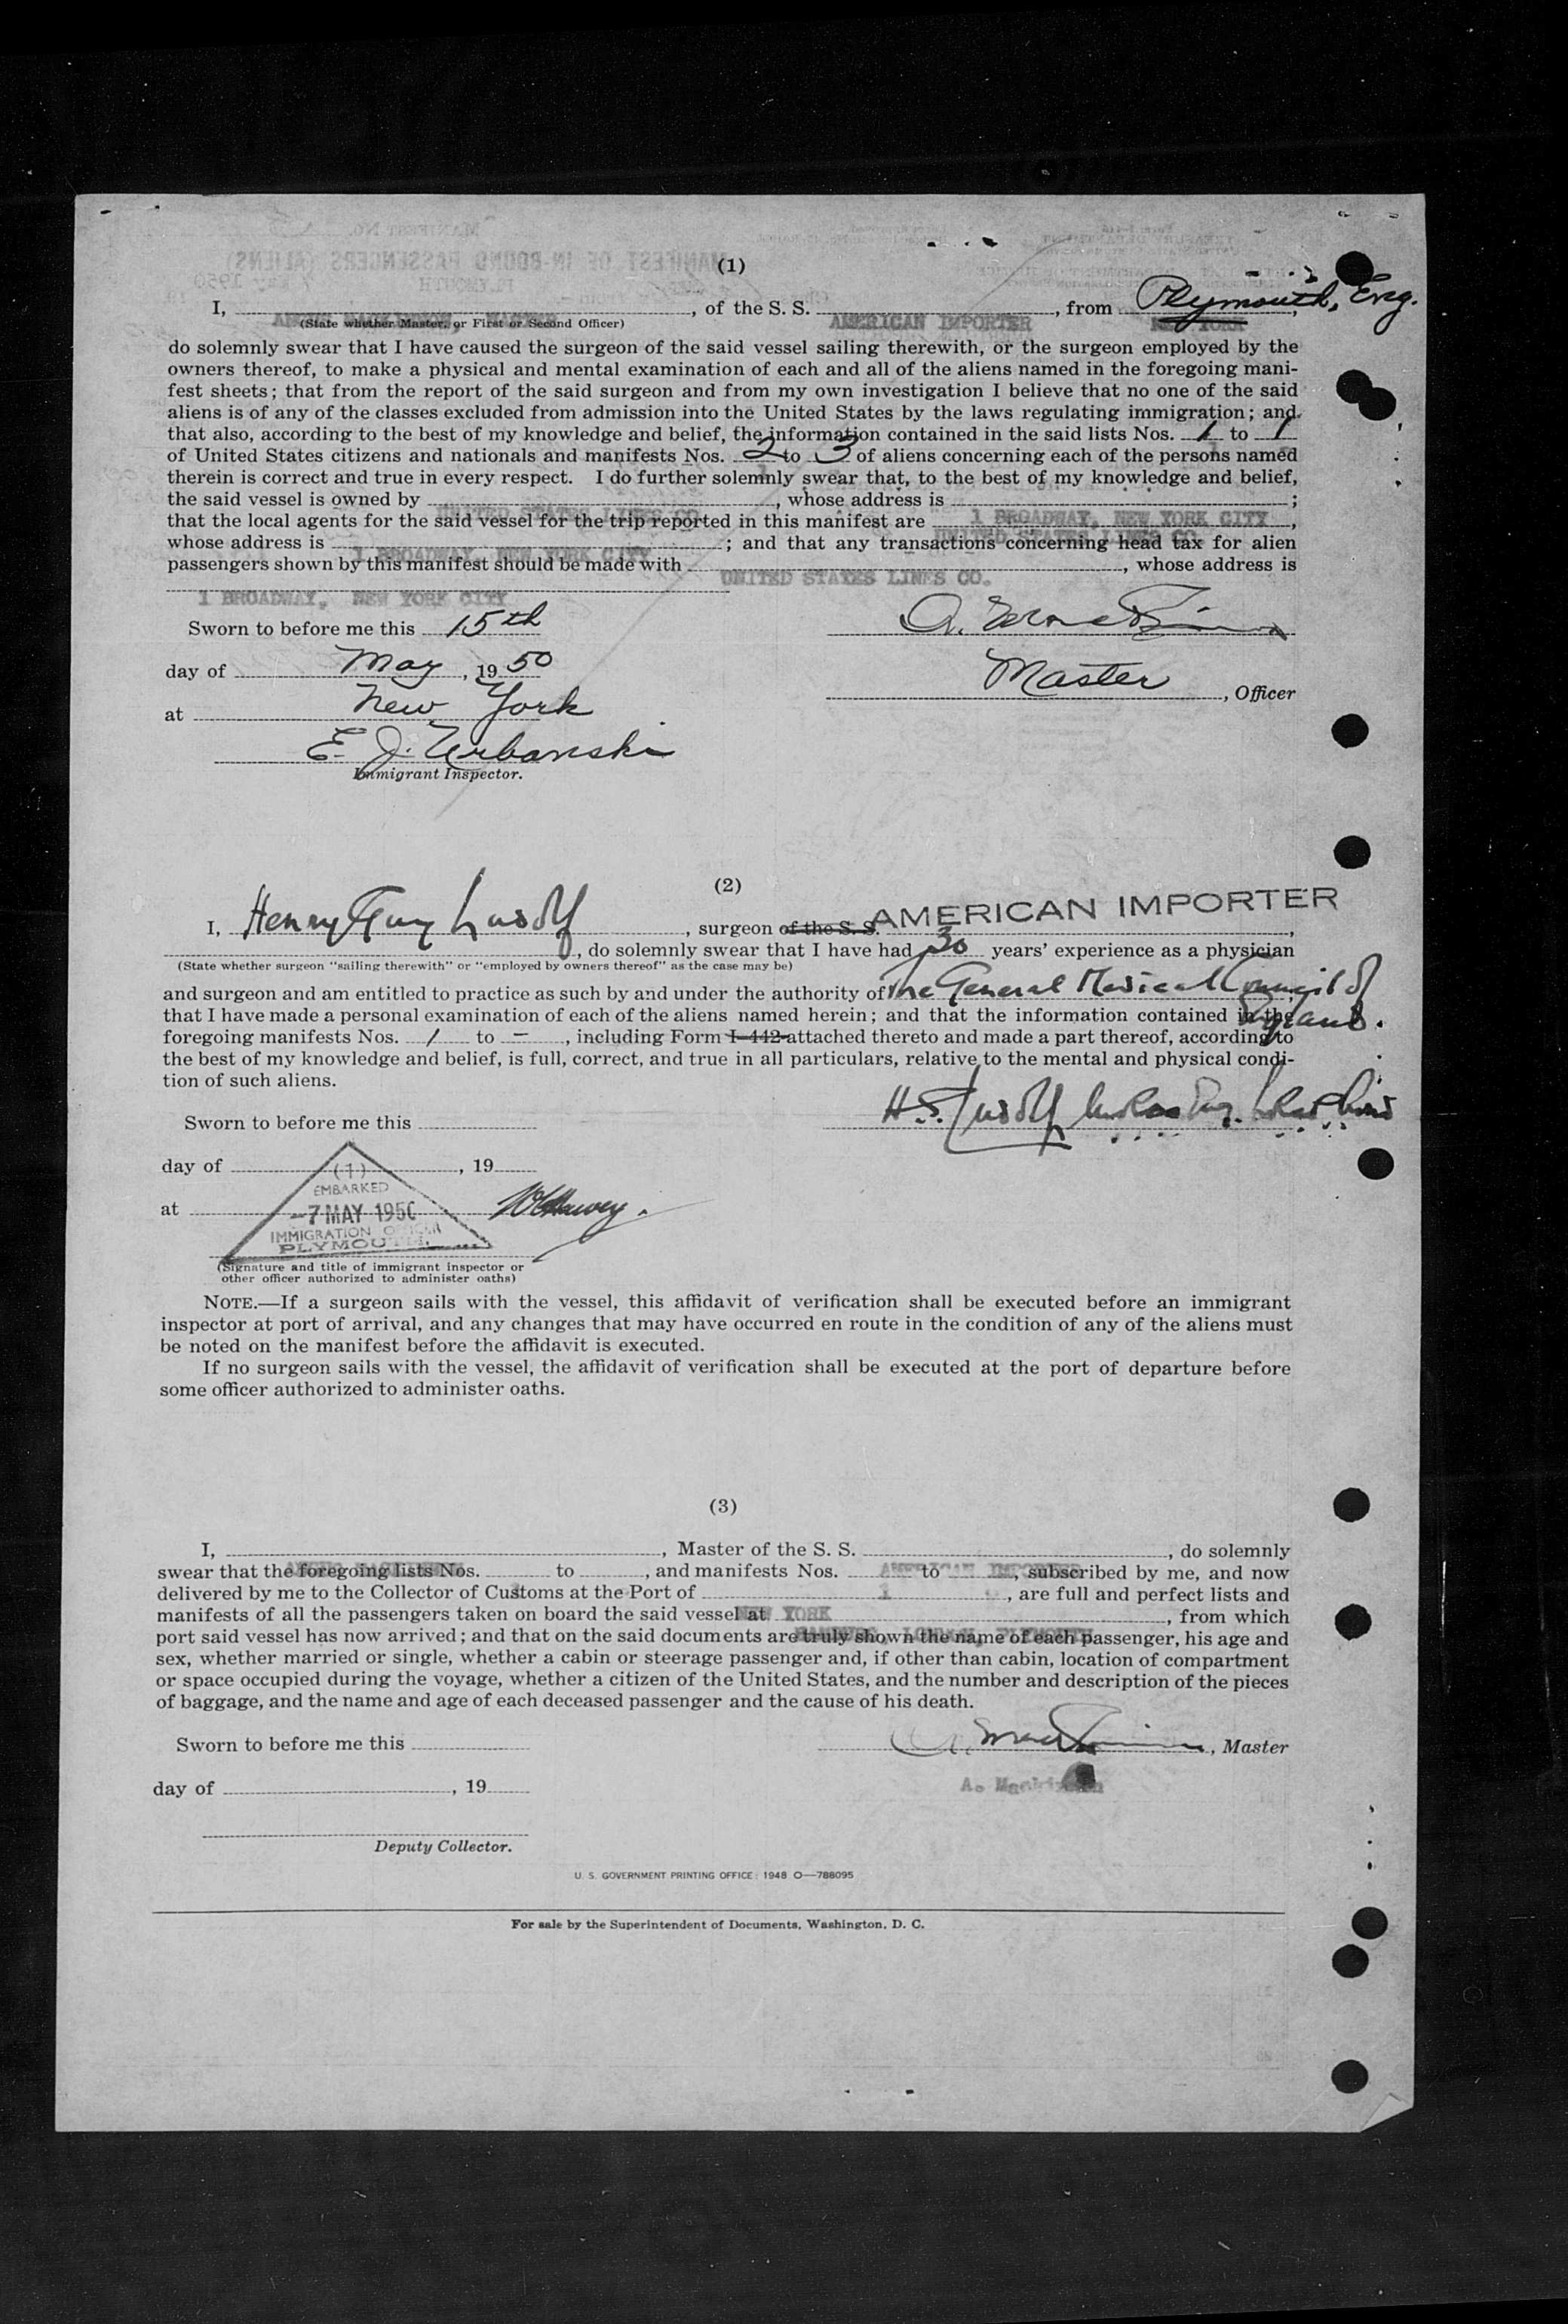 (1)
I, ANGUS MACKINNON, MASTER, of the S. S. AMERICAN IMPORTER, from Plymouth, Eng.
NEW YORK
(State whether Master, or First or Second Officer)
do solemnly swear that I have caused the surgeon of the said vessel sailing therewith, or the surgeon employed by the
owners thereof, to make a physical and mental examination of each and all of the aliens named in the foregoing mani-
fest sheets; that from the report of the said surgeon and from my own investigation I believe that no one of the said
aliens is of any of the classes excluded from admission into the United States by the laws regulating immigration; and
that also, according to the best of my knowledge and belief, the information contained in the said lists Nos. 1 to 1
of United States citizens and nationals and manifests Nos. 2 to 3 of aliens concerning each of the persons named
therein is correct and true in every respect. I do further solemnly swear that, to the best of my knowledge and belief,
the said vessel is owned by UNITED STATES LINES CO, whose address is 1 BROADWAY, NEW YORK CITY;
that the local agents for the said vessel for the trip reported in this manifest are UNITED STATES LINES CO.,
whose address is 1 BROADWAY, NEW YORK CITY; and that any transactions concerning head tax for alien
passengers shown by this manifest should be made with UNITED STATES LINES CO., whose address is
1 BROADWAY, NEW YORK CITY
Sworn to before me this 15th
day of May, 1950
Master, Officer
at New York
E. J. Urbanski
Immigrant Inspector.
(2)
I, Henry Guy Ludolf, surgeon of the S. S. AMERICAN IMPORTER,
, do solemnly swear that I have had 30 years' experience as a physician
(State whether surgeon "sailing therewith" or "employed by owners thereof" as the case may be)
and surgeon and am entitled to practice as such by and under the authority of The General Medical Council of
England.
that I have made a personal examination of each of the aliens named herein; and that the information contained in the
foregoing manifests Nos. 1 to -, including Form I-442 attached thereto and made a part thereof, according to
the best of my knowledge and belief, is full, correct, and true in all particulars, relative to the mental and physical condi-
tion of such aliens.
H. G. Ludolf
Sworn to before me this
day of , 19
at
(1)
EMBARKED
-7 MAY 1950
IMMIGRATION OFFICER
PLYMOUTH
(Signature and title of immigrant inspector or
other officer authorized to administer oaths)
NOTE.—If a surgeon sails with the vessel, this affidavit of verification shall be executed before an immigrant
inspector at port of arrival, and any changes that may have occurred en route in the condition of any of the aliens must
be noted on the manifest before the affidavit is executed.
If no surgeon sails with the vessel, the affidavit of verification shall be executed at the port of departure before
some officer authorized to administer oaths.
(3)
I, ANGUS MACKINNON, Master of the S. S. AMERICAN IMPORTER, do solemnly
swear that the foregoing lists Nos. to , and manifests Nos. 1 to , subscribed by me, and now
delivered by me to the Collector of Customs at the Port of NEW YORK, are full and perfect lists and
manifests of all the passengers taken on board the said vessel at HAMBURG, LONDON, PLYMOUTH, from which
port said vessel has now arrived; and that on the said documents are truly shown the name of each passenger, his age and
sex, whether married or single, whether a cabin or steerage passenger and, if other than cabin, location of compartment
or space occupied during the voyage, whether a citizen of the United States, and the number and description of the pieces
of baggage, and the name and age of each deceased passenger and the cause of his death.
Sworn to before me this
, Master
A. Mackinnon
day of , 19
Deputy Collector.
U. S. GOVERNMENT PRINTING OFFICE: 1948 O—788095
For sale by the Superintendent of Documents, Washington, D. C.